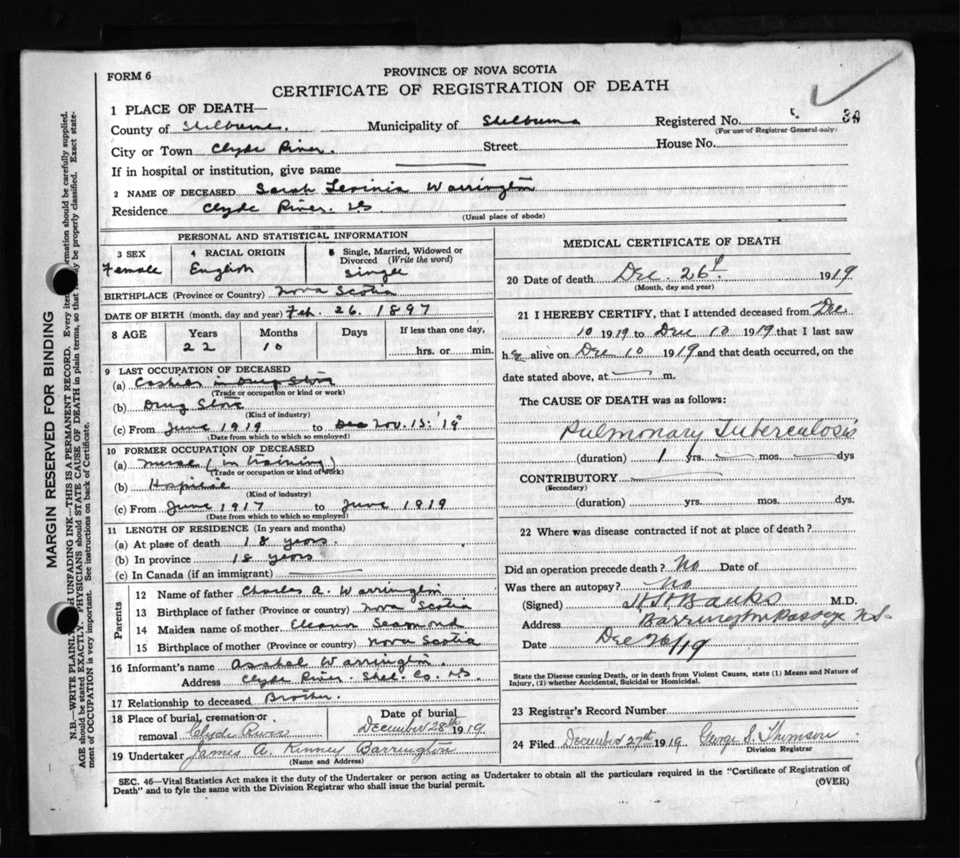 FORM 6
PROVINCE OF NOVA SCOTIA
CERTIFICATE OF REGISTRATION OF DEATH
1 PLACE OF DEATH—
County of Shelburne. Municipality of Shelburne Registered No. 30
(For use of Registrar General only)
City or Town Clyde River. Street House No.
If in hospital or institution, give name
2 NAME OF DECEASED Sarah Levinia Warrington
Residence Clyde River. N.S
(Usual place of abode)
PERSONAL AND STATISTICAL INFORMATION
3 SEX 4 RACIAL ORIGIN 5 Single, Married, Widowed or Divorced (Write the word)
Female English Single
BIRTHPLACE (Province or Country) Nova Scotia
DATE OF BIRTH (month, day and year) Feb. 26. 1897
8 AGE Years Months Days If less than one day,
22 10 hrs. or min.
9 LAST OCCUPATION OF DECEASED
(a) Cashier in Drug Store
(Trade or occupation or kind or work)
(b) Drug Store
(Kind of industry)
(c) From June 1919 to Dec Nov. 15. '19
(Date from which to which so employed)
10 FORMER OCCUPATION OF DECEASED
(a) nurse (in training)
(Trade or occupation or kind of work)
(b) Hospital
(Kind of industry)
(c) From June 1917 to June 1919
(Date from which to which so employed)
11 LENGTH OF RESIDENCE (In years and months)
(a) At place of death 18 years.
(b) In province 18 years
(c) In Canada (if an immigrant)
Parents
12 Name of father Charles A. Warrington
13 Birthplace of father (Province or country) Nova Scotia
14 Maiden name of mother Eleanor
15 Birthplace of mother (Province or country) Nova Scotia
16 Informant's name Asahel Warrington.
Address Clyde River. Shel. Co. N.S
17 Relationship to deceased Brother.
18 Place of burial, cremation or removal Clyde River Date of burial December 28th 1919.
19 Undertaker James A. Kinney Barrington
(Name and Address)
MEDICAL CERTIFICATE OF DEATH
20 Date of death Dec. 26 1919
(Month, day and year)
21 I HEREBY CERTIFY, that I attended deceased from Dec
10 1919 to Dec 10 1919 that I last saw
her alive on Dec 10 1919 and that death occurred, on the
date stated above, at m.
The CAUSE OF DEATH was as follows:
Pulmonary Tuberculosis
(duration) 1 yrs. mos. dys
CONTRIBUTORY
(Secondary)
(duration) yrs. mos. dys.
22 Where was disease contracted if not at place of death?
Did an operation precede death? No Date of
Was there an autopsy? No
(Signed) Banks M.D.
Address Barrington Passage N.S.
Date Dec 26/19
State the Disease causing Death, or in death from Violent Causes, state (1) Means and Nature of
Injury, (2) whether Accidental, Suicidal or Homicidal.
23 Registrar's Record Number
24 Filed December 27th 1919 George S. Thomson
Division Registrar
SEC. 46—Vital Statistics Act makes it the duty of the Undertaker or person acting as Undertaker to obtain all the particulars required in the "Certificate of Registration of
Death" and to fyle the same with the Division Registrar who shall issue the burial permit.
(OVER)
MARGIN RESERVED FOR BINDING
N.B.—WRITE PLAINLY UNFADING INK—THIS IS A PERMANENT RECORD. Every item information should be carefully supplied.
AGE should be stated EXACTLY. PHYSICIANS should STATE CAUSE OF DEATH in plain terms, so that may be properly classified. Exact state-
ment of OCCUPATION is very important. See instructions on back of Certificate.